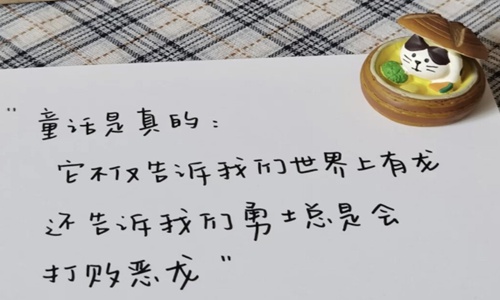 "童话是真的:
它不仅告诉我们世界上有龙
还告诉我们勇士总是会
打败恶龙"